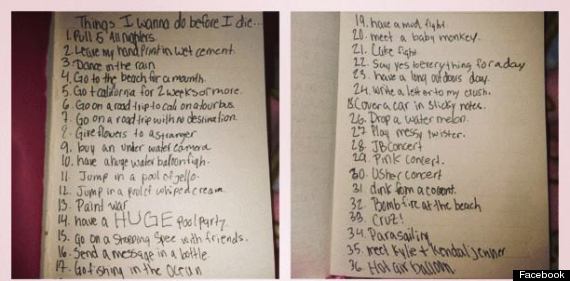 Things I wanna do before I die...
1. Pull 5 All nighters.
2. Leave my hand Print in wet cement.
3. Dance in the rain
4. Go to the beach for a mounth.
5. Go to california for 2 weeks or more.
6. Go on a road trip to cali on a tour bus.
7. Go on a road trip with no destination.
8. Give flowers to a stranger
9. buy an under water camera
10. have a huge water balloon figh.
11. Jump in a pool of jello.
12. Jump in a pool of whiped cream.
13. Paint war
14. have a HUGE Pool party.
15. Go on a Shopping Spee with friends.
16. Send a message in a bottle.
17. Go fishing in the Ocean
19. have a mud fight.
20. meet a baby monkey.
21. Cake fight
22. Say yes to everything for a day
23. have a long outdoors day.
24. write a letter to my crush.
25. Cover a car in sticky notes.
26. Drop a water melon.
27. Play messy twister.
28. JB Concert
29. Pink Concert.
30. Usher Concert
31. drink from a coconut.
32. Bomb fire at the beach
33. Cruz!
34. Parasailing
35. meet Kylie + Kendal Jenner
36. Hot air balloon
Facebook